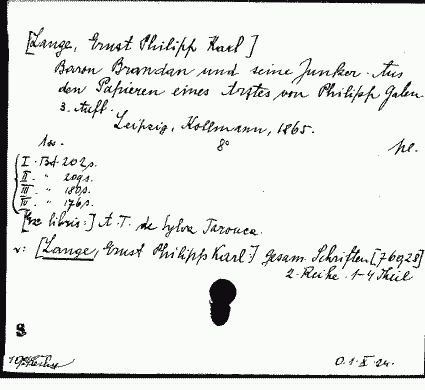 [Lange, Ernst Philipp Karl]
Baron Brandan und seine Junker. Aus
den Papieren eines Arztes von Philipp Galen.
3. Aufl.
Leipzig, Kollmann, 1865.
8°
I. Bd. 202 s.
II. " 209 s.
III " 180 s.
IV. " 176 s.
[Ex libris:] A. T. de Sylva Tarouca.
v: [Lange, Ernst Philipp Karl:] Gesam. Schriften [76928]
2. Reihe. 1-4 Theil
S